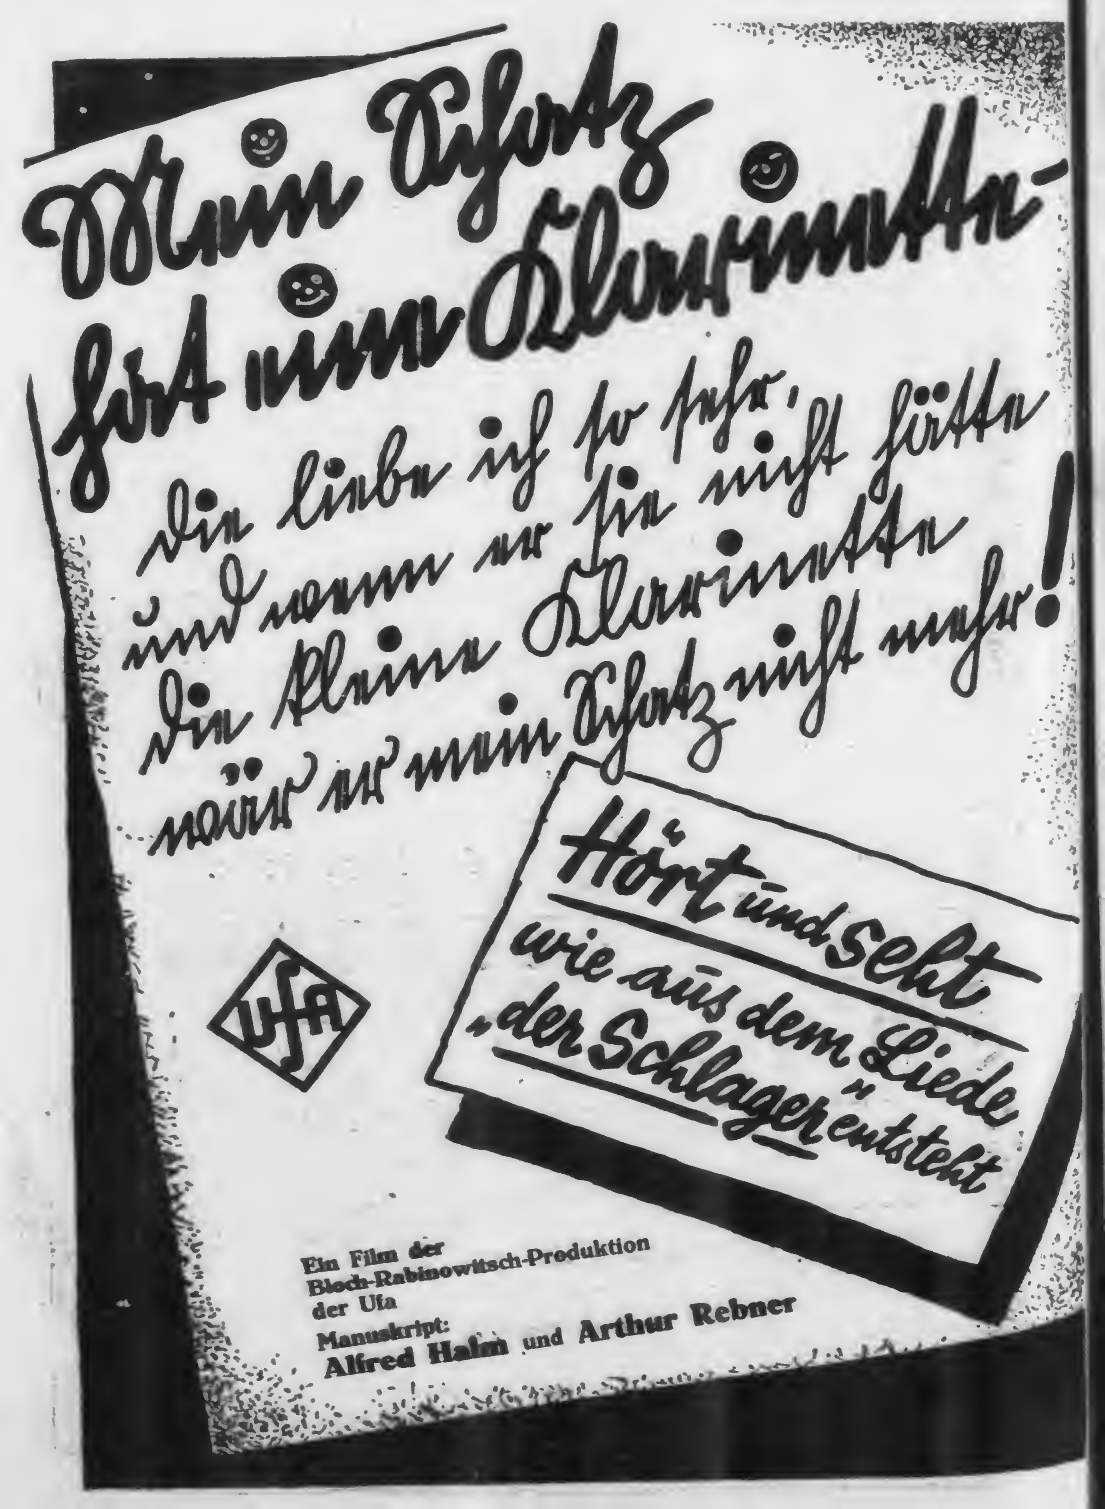 Mein Schatz
hat eine Klarinette-
die liebe ich so sehr,
und wenn er sie nicht hätte
die kleine Klarinette
wär er mein Schatz nicht mehr!
Hört und seht
wie aus dem Liede
„der Schlager" entsteht
UFA
Ein Film der
Bloch-Rabinowitsch-Produktion
der Ufa
Manuskript:
Alfred Halm und Arthur Rebner